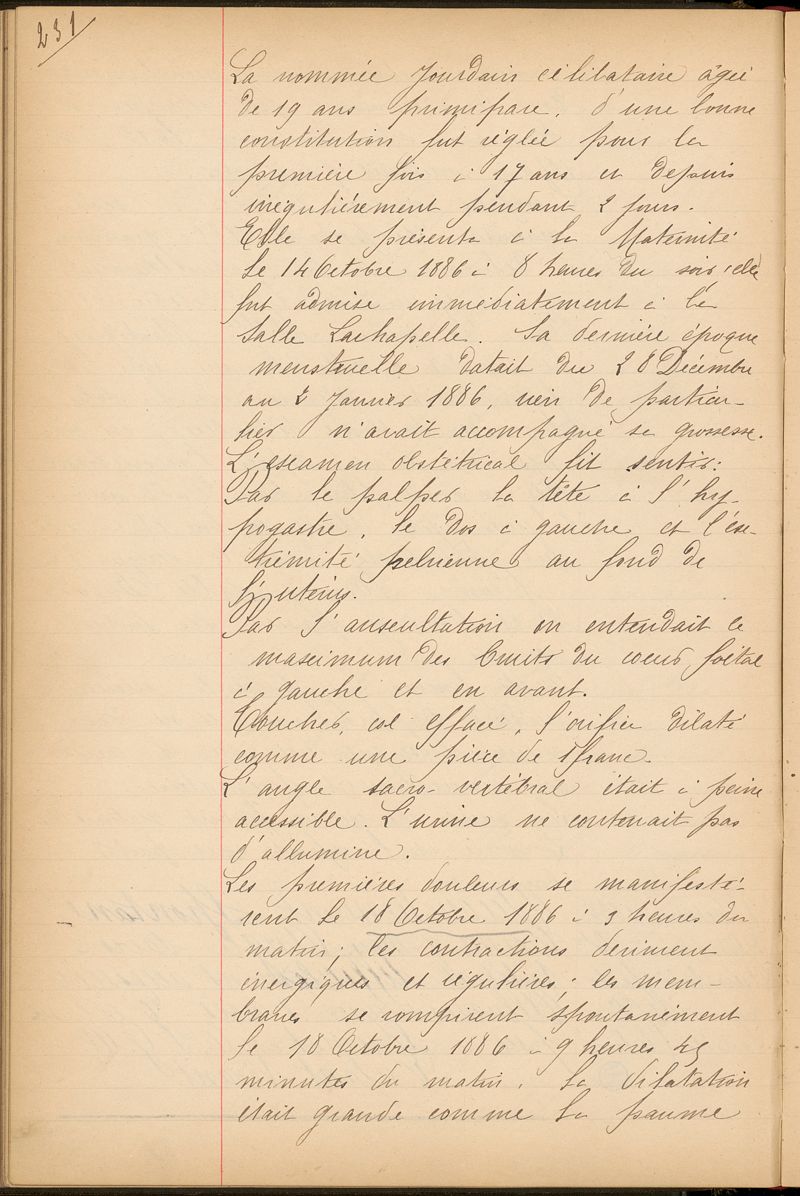 231
La nommée Jourdain célibataire âgée
de 19 ans primipare, d'une bonne
constitution fut réglée pour la
première fois à 17 ans et depuis
irrégulièrement pendant 2 jours.
Elle se présenta à la Maternité
le 14 Octobre 1886 à 8 heures du soir, elle
fut admise immédiatement à la
Salle Lachapelle. Sa dernière époque
menstruelle datait du 28 Décembre
au 2 Janvier 1886, rien de particu-
lier n'avait accompagné sa grossesse.
L'examen obstétrical fit sentir:
Par le palper la tête à l'hy-
pogastre, le dos à gauche et l'ex-
trémité pelvienne au fond de
l'utérus.
Par l'auscultation on entendait le
maximum des bruits du coeur foetal
à gauche et en avant.
Toucher, col effacé, l'orifice dilaté
comme une pièce de 1 franc.
L'angle sacro-vertébral était à peine
accessible. L'urine ne contenait pas
d'albumine.
Les premières douleurs se manifestè-
rent le 18 Octobre 1886 à 3 heures du
matin; les contractions devinrent
énergiques et régulières; les mem-
branes se rompirent spontanément
le 18 Octobre 1886 à 9 heures 45
minutes du matin. La dilatation
était grande comme la paume